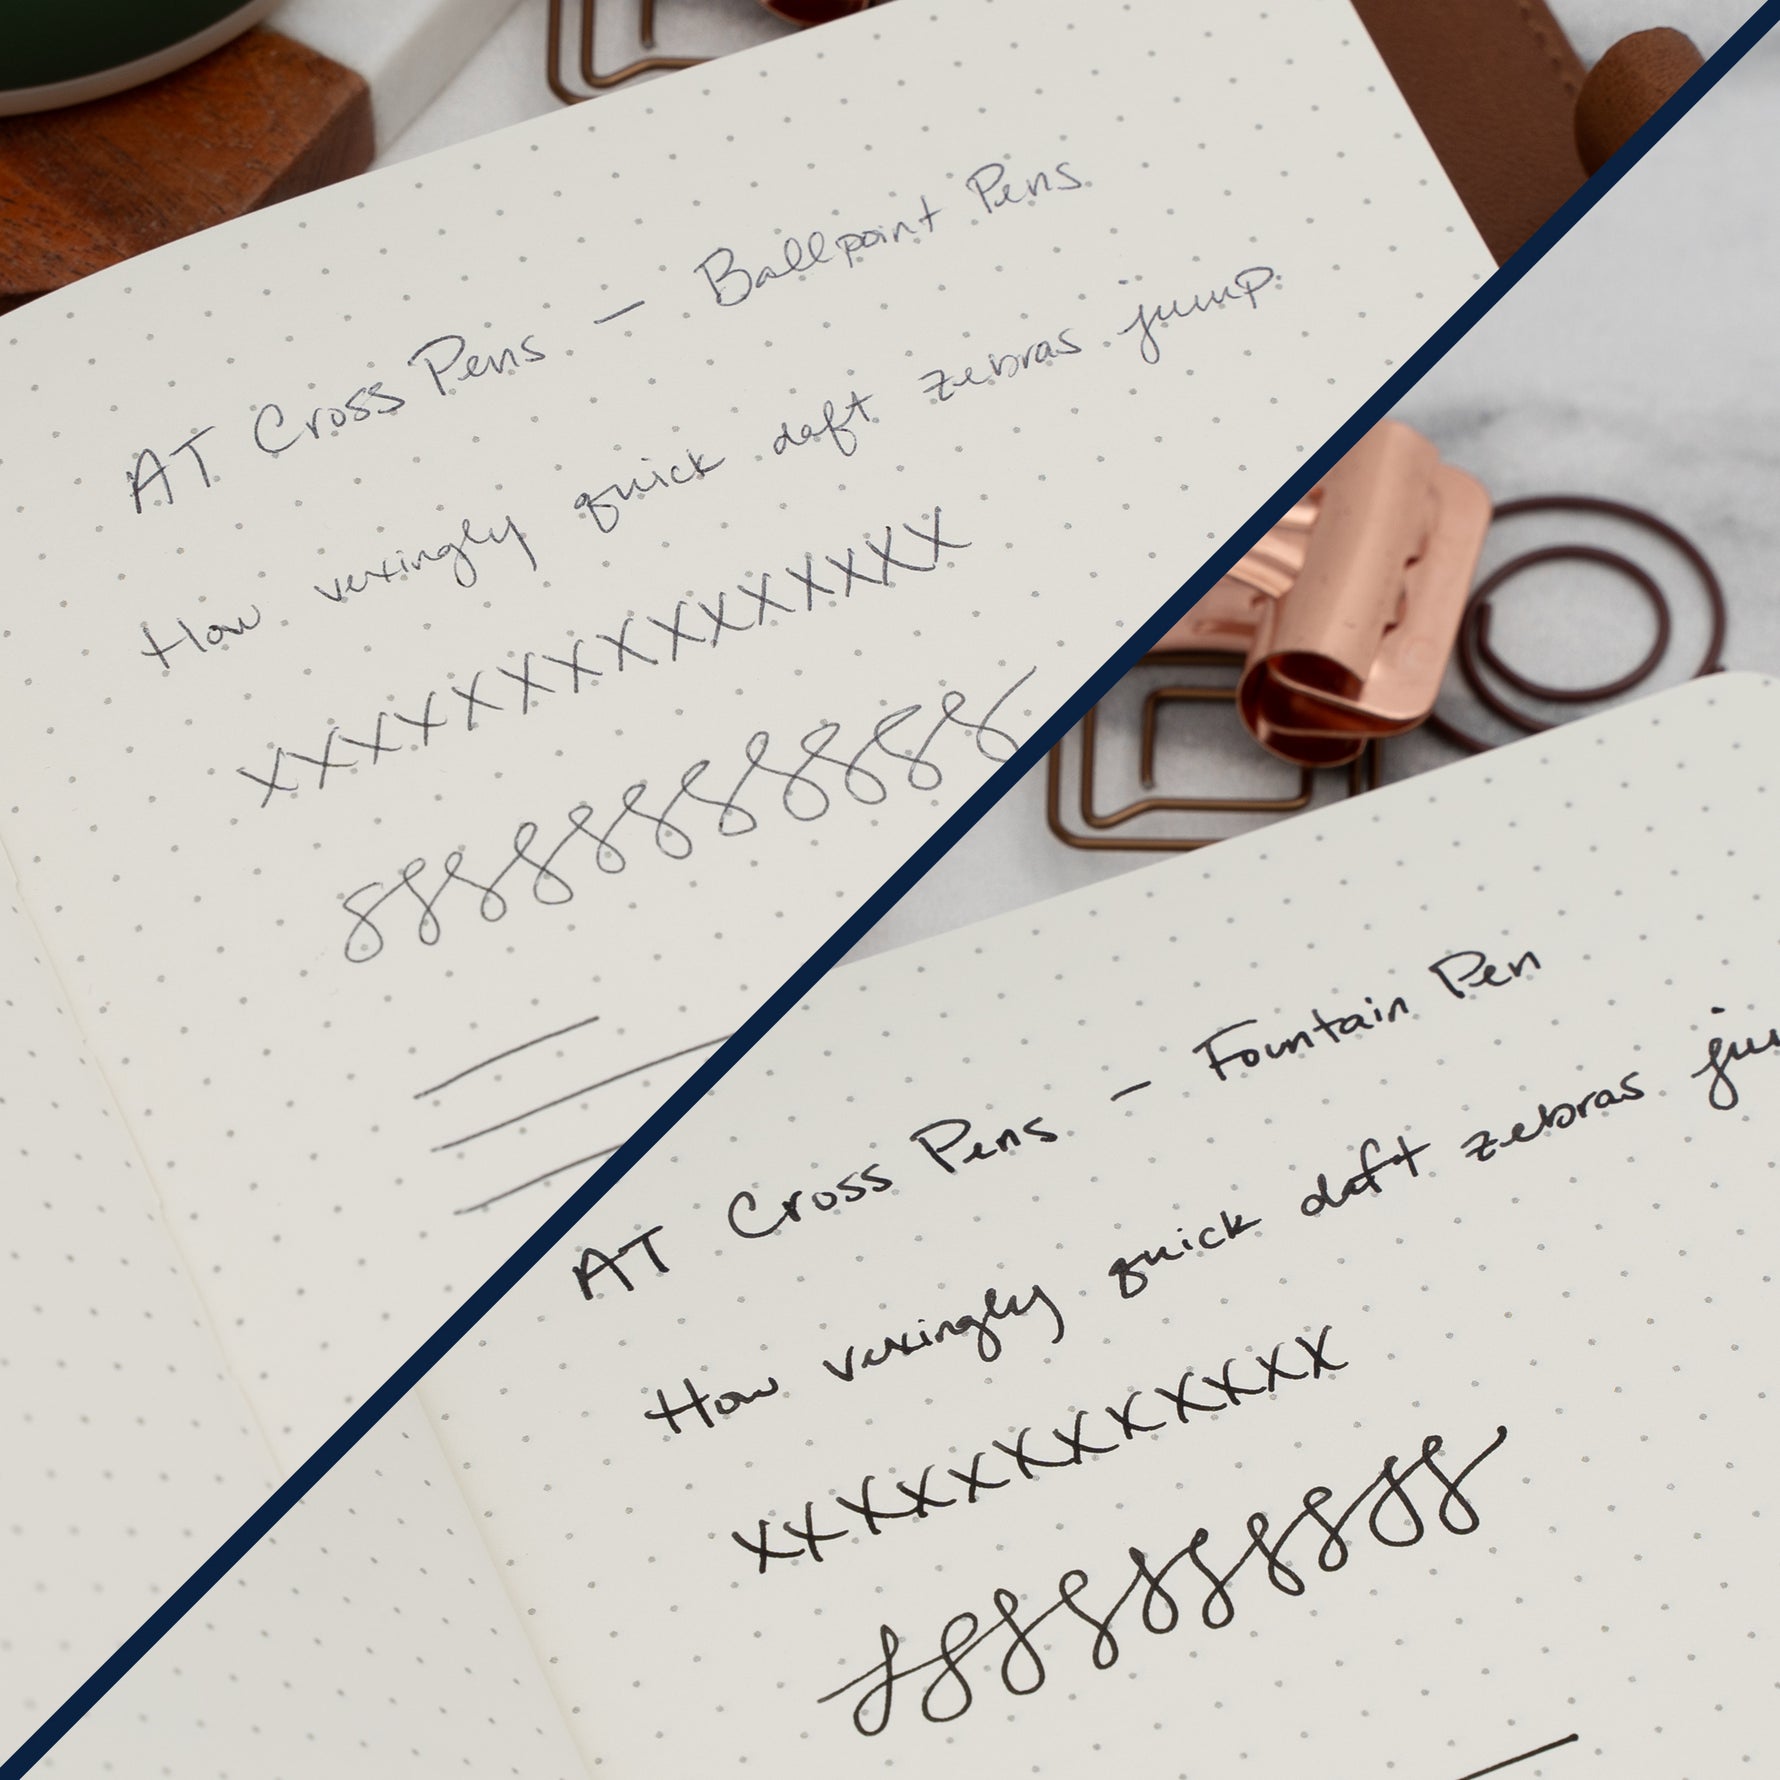 AT Cross Pens – Ballpoint Pens
How vexingly quick daft zebras jump
XXXXXXXXXXXXXX
AT Cross Pens – Fountain Pen
How vexingly quick daft zebras ju
XXXXXXXXXXXX